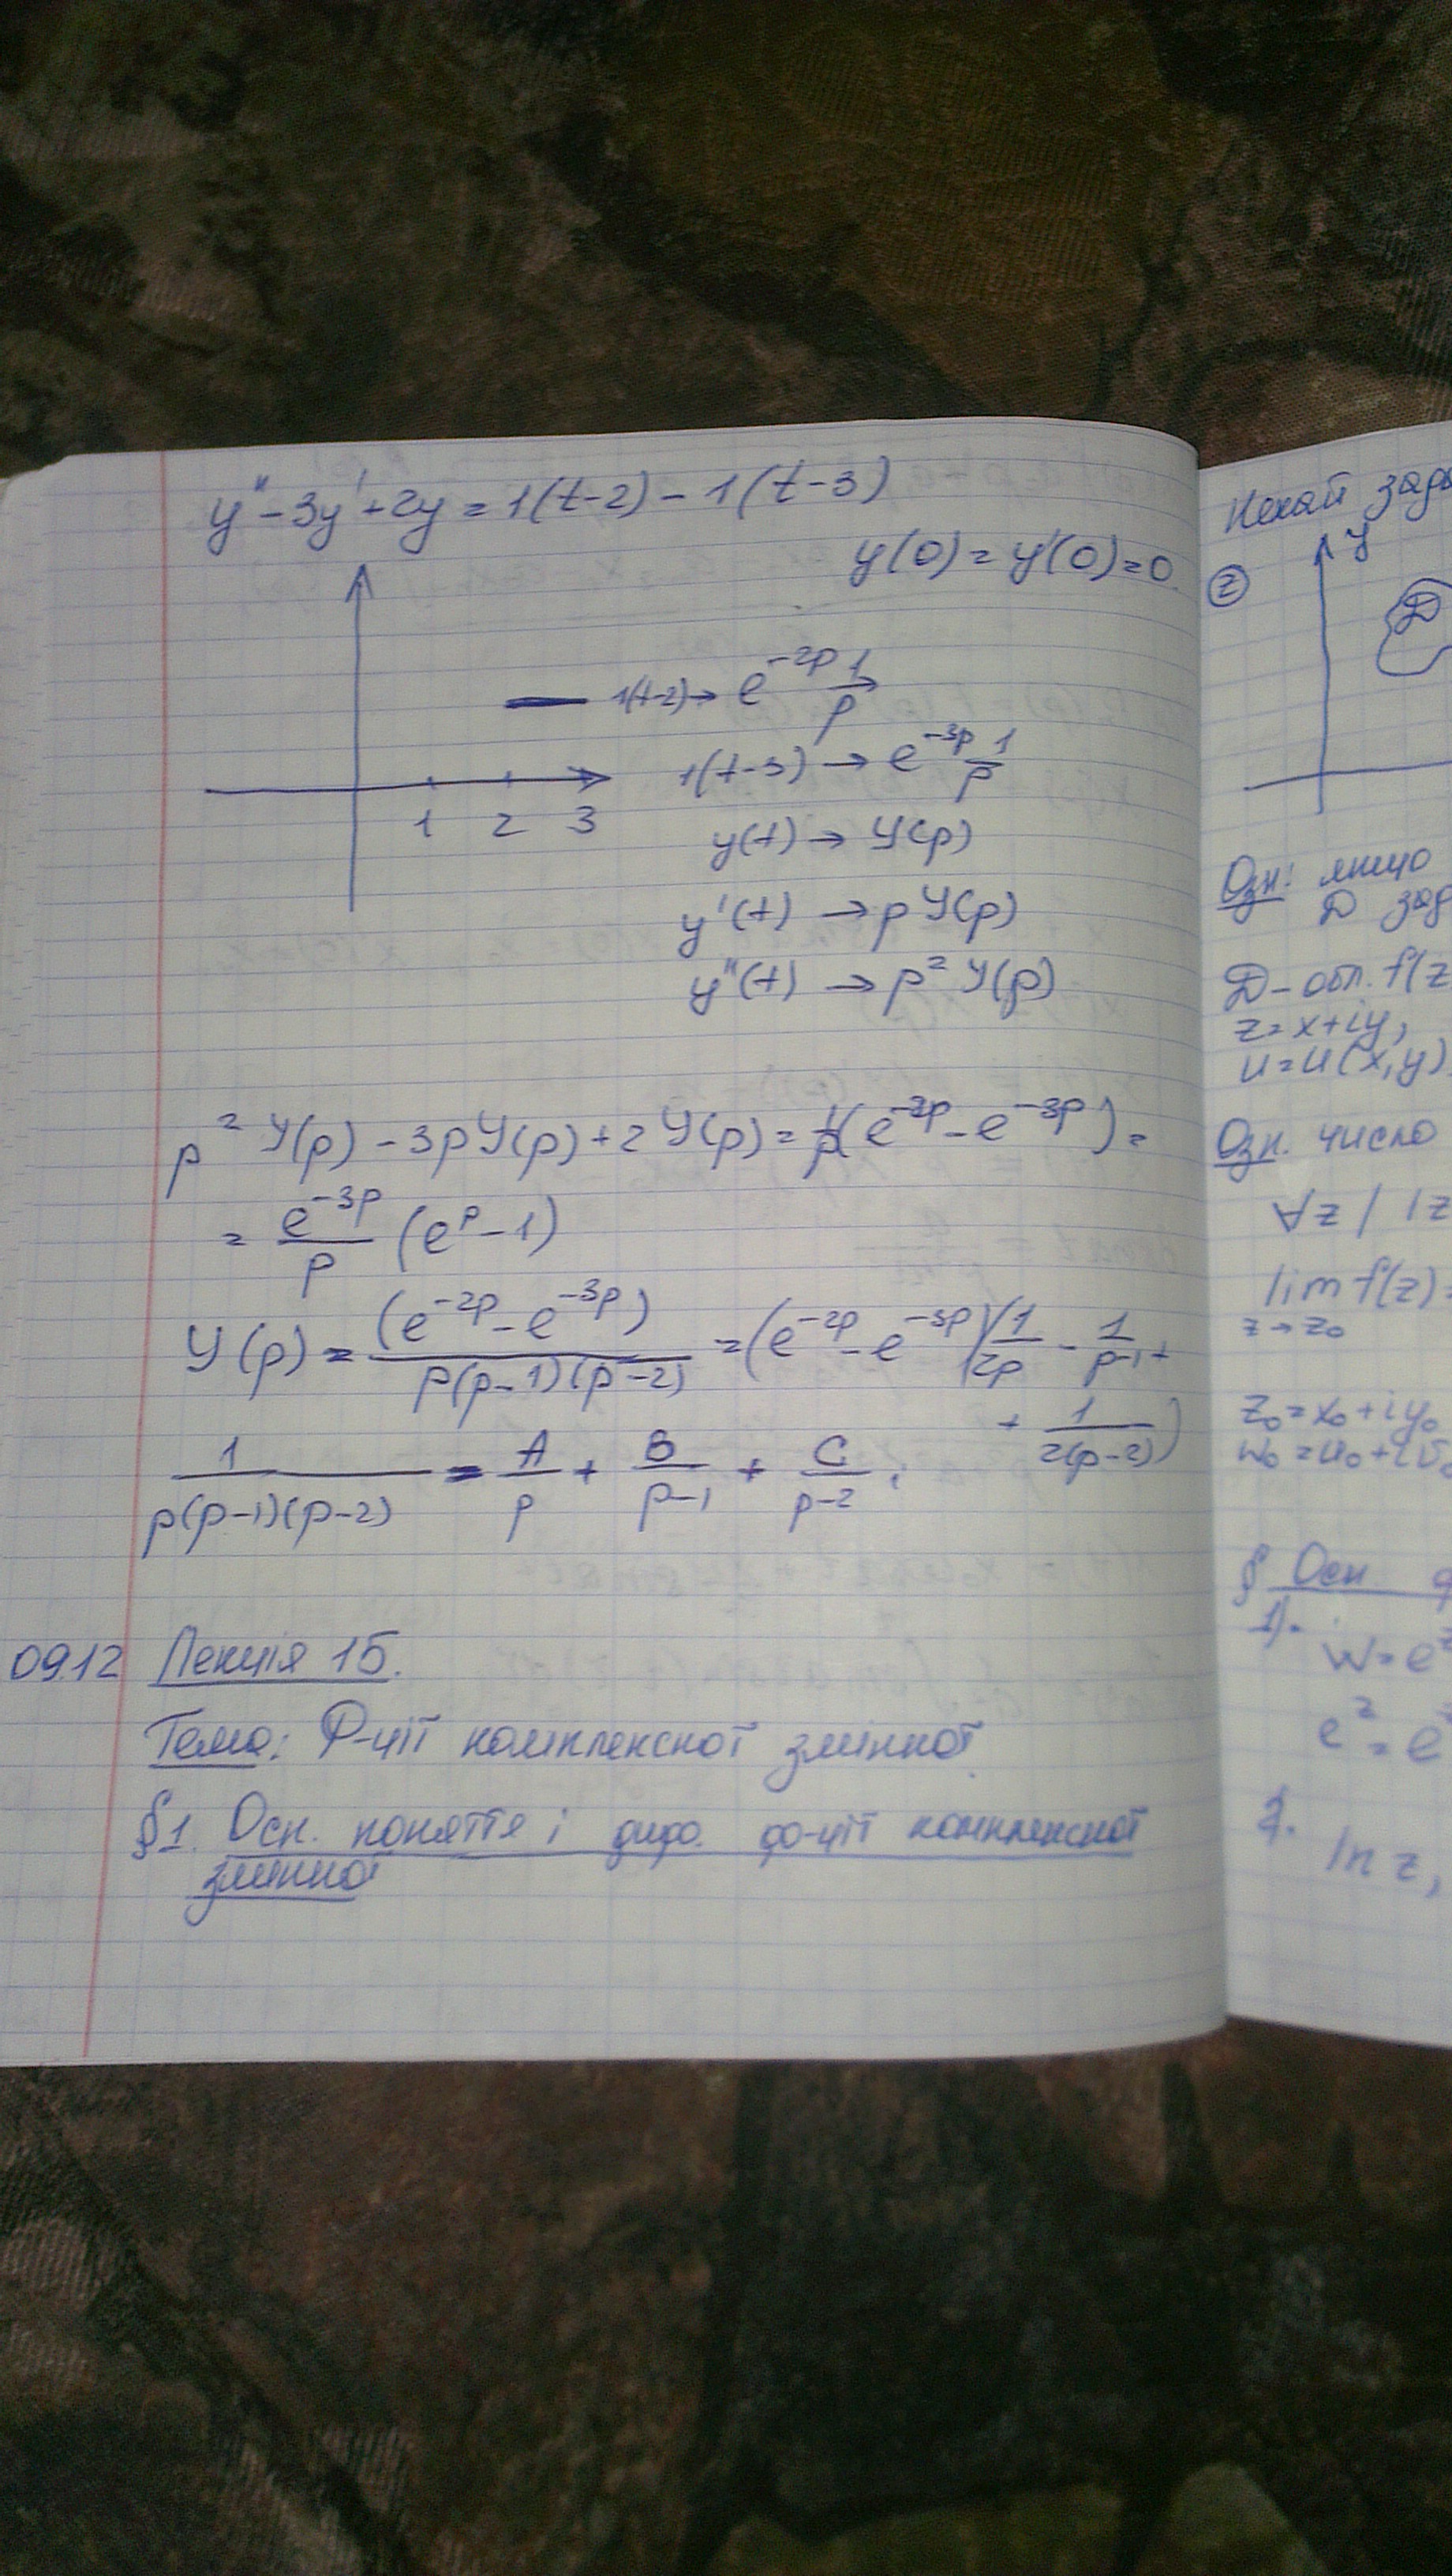 y'' - 3y' + 2y = 1(t-2) - 1(t-3)
y(0) = y'(0) = 0
1(t-2) → e^{-2p} 1/p
1(t-3) → e^{-3p} 1/p
1 2 3
y(t) → Y(p)
y'(t) → pY(p)
y''(t) → p² Y(p)
p² Y(p) - 3pY(p) + 2Y(p) = 1/p (e^{-2p} - e^{-3p}) =
= e^{-3p}/p (e^p - 1)
Y(p) = (e^{-2p} - e^{-3p})/(p(p-1)(p-2)) = (e^{-2p} - e^{-3p})(1/2p - 1/(p-1) +
+ 1/(2(p-2)))
1/(p(p-1)(p-2)) = A/p + B/(p-1) + C/(p-2)
09.12 Лекція 15.
Тема: Ф-ції комплексної змінної
§1. Осн. поняття і диф. ф-ції комплексної
змінної
Нехай зада
y
z
D
Озн: якщо
D зад
D - обл. f(z
z = x + iy,
u = u(x, y)
Озн. число
∀z / |z
lim f(z) =
z → z₀
z₀ = x₀ + iy₀
w₀ = u₀ + iv₀
§ Осн.
1).
w = e^z
e^z = e
2.
ln z,